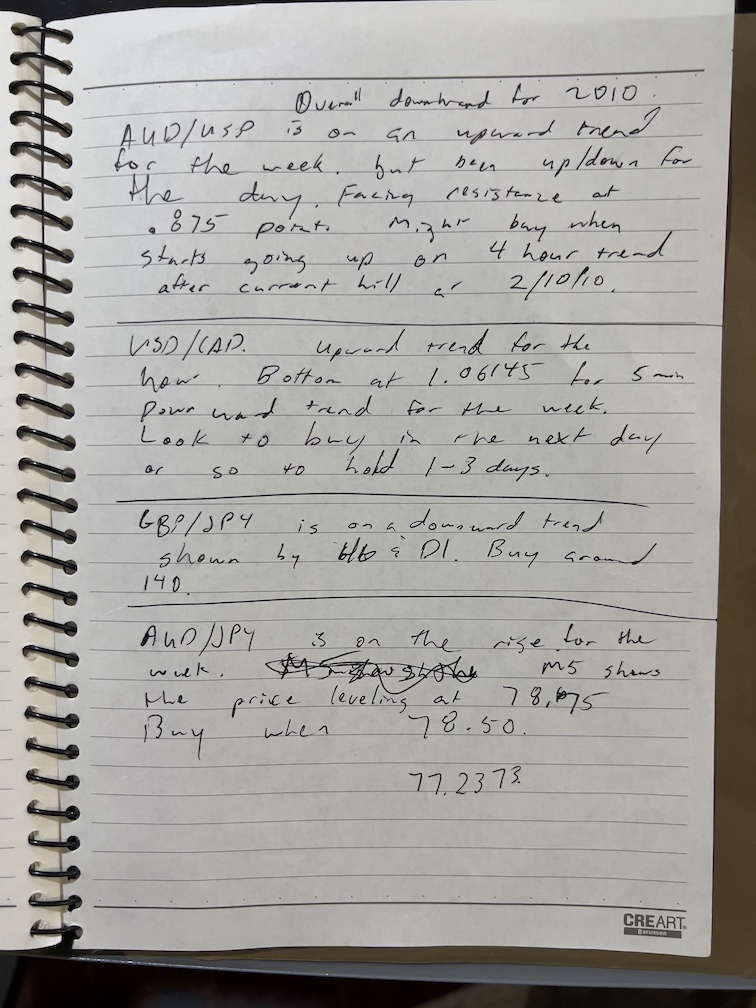 Overall downtrend for 2010.
AUD/USD is on an upward trend
for the week, but been up/down for
the day. Facing resistance at
.875 point. Might buy when
starts going up on 4 hour trend
after current hill at 2/10/10.
USD/CAD. Upward trend for the
hour. Bottom at 1.06145 for 5 min
Downward trend for the week.
Look to buy in the next day
or so to hold 1-3 days.
GBP/JPY is on a downward trend
shown by & D1. Buy around
140.
AUD/JPY is on the rise for the
week. M5 shows
the price leveling at 78.675
Buy when 78.50.
77.2373.
CREART
BAYUNSON